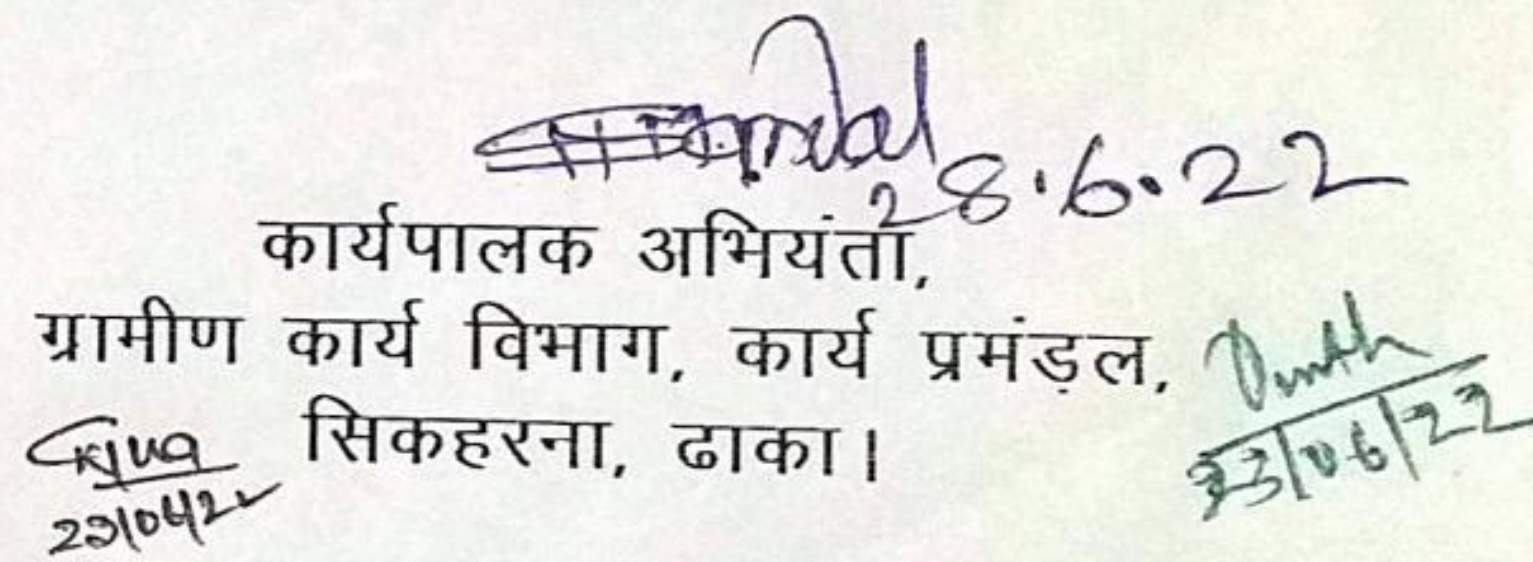 28.6.22
कार्यपालक अभियंता,
ग्रामीण कार्य विभाग, कार्य प्रमंड़ल,
सिकहरना, ढाका।
23/06/22